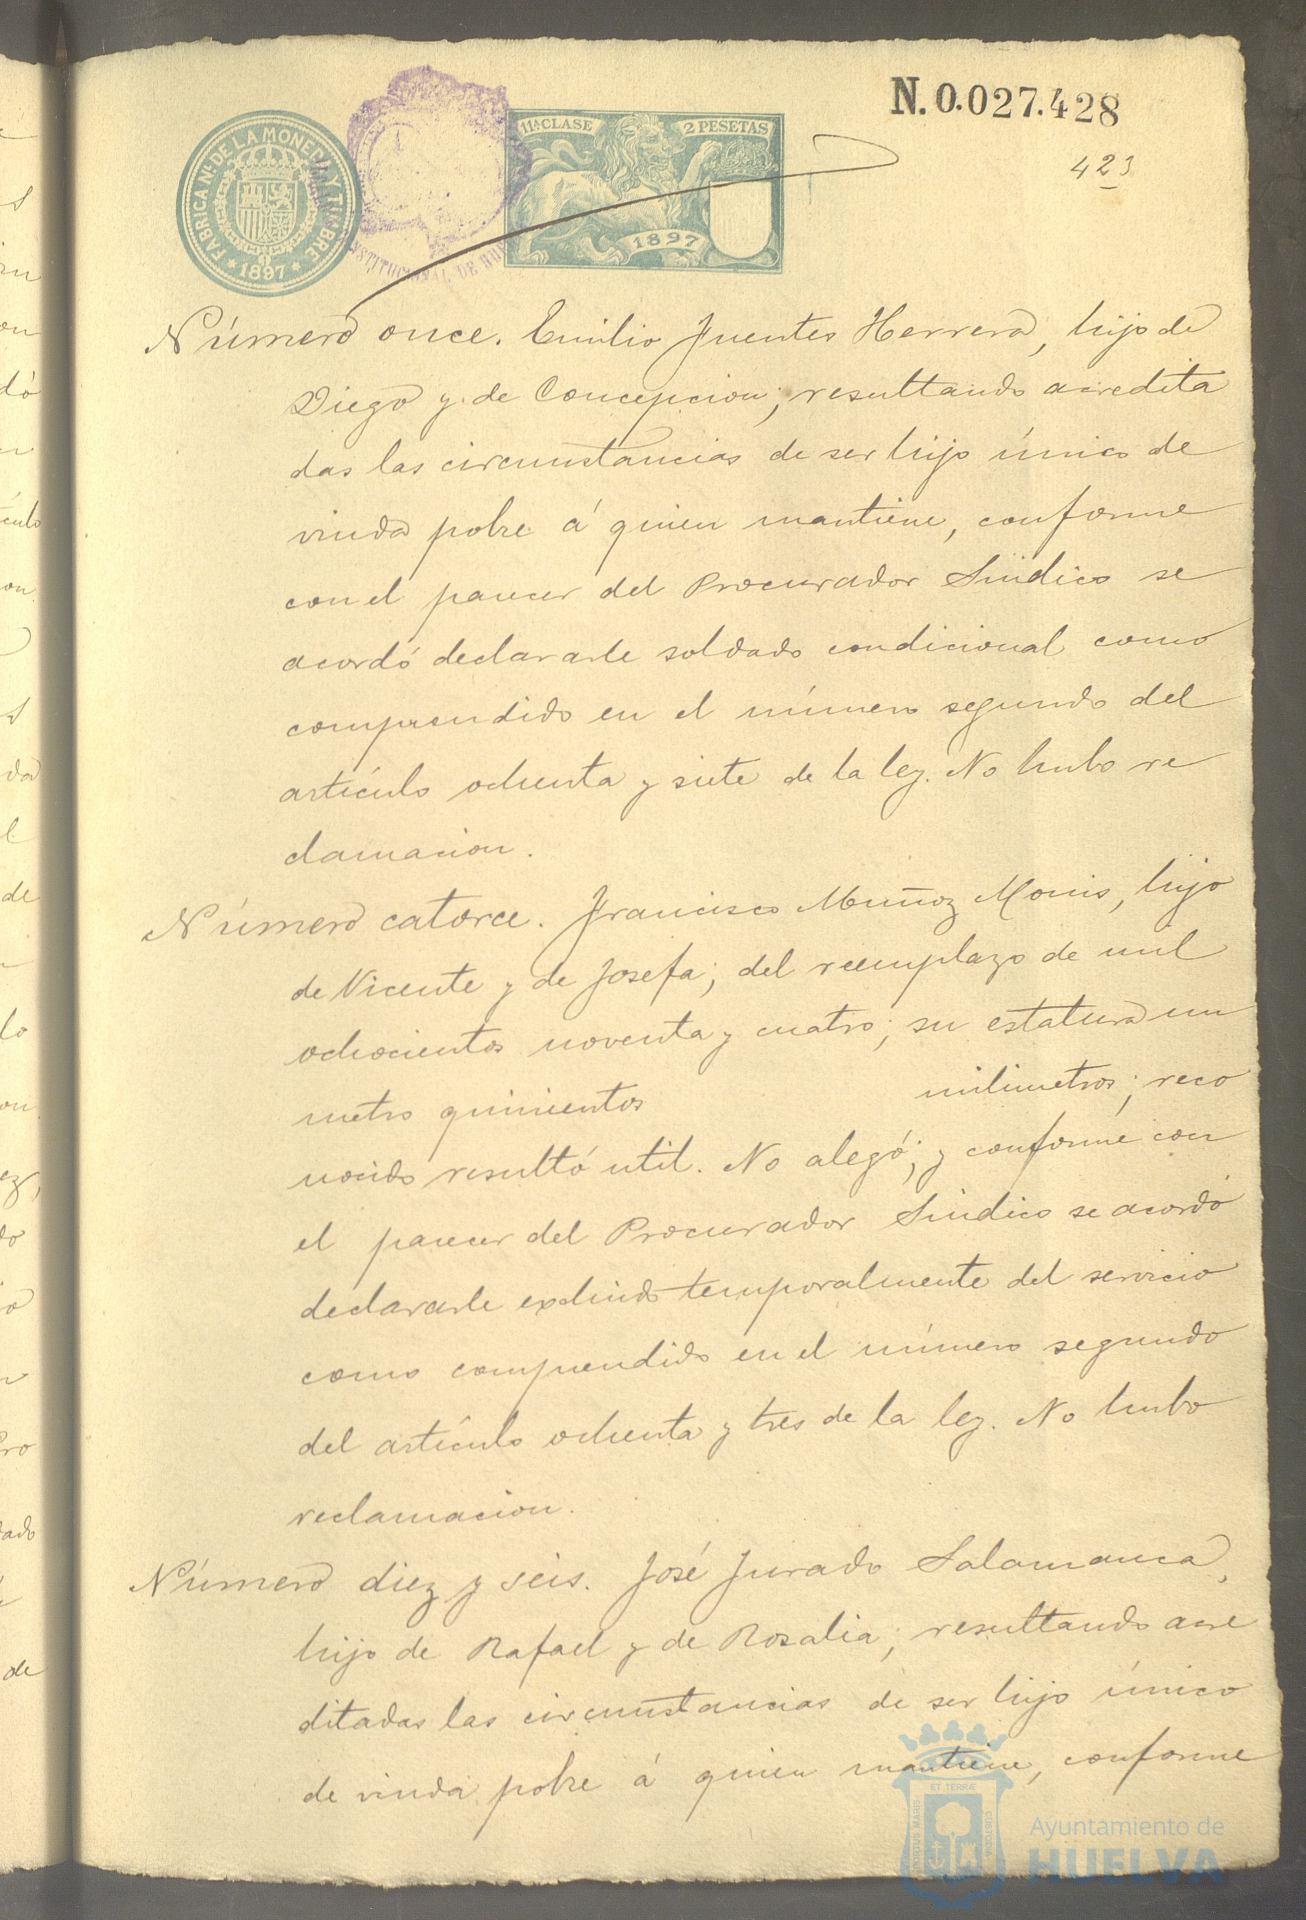 N. 0.027.428
423
FABRICA NL. DE LA MONEDA Y TIMBRE
* 1897 *
11ª CLASE 2 PESETAS
1897
CONSTITUCIONAL DE HUELVA
Número once. Emilio Fuentes Herrera, hijo de
Diego y de Concepcion; resultando acredita
das las circunstancias de ser hijo único de
viuda pobre á quien mantiene, conforme
con el parecer del Procurador Sindico se
acordó declararle soldado condicional como
comprendido en el número segundo del
artículo ochenta y siete de la ley. No hubo re
clamacion.
Número catorce. Francisco Muñoz Monis, hijo
de Vicente y de Josefa; del reemplazo de mil
ochocientos noventa y cuatro; su estatura un
metro quinientos milimetros; reco
nocido resultó util. No alegó; y conforme con
el parecer del Procurador Sindico se acordó
declararle excluido temporalmente del servicio
como comprendido en el número segundo
del artículo ochenta y tres de la ley. No hubo
reclamacion.
Número diez y seis. José Jurado Salamanca,
hijo de Rafael y de Rosalia; resultando acre
ditadas las circunstancias de ser hijo único
de viuda pobre á quien mantiene, conforme
ET TERRÆ
PORTUS MARIS
CUSTODIA
Ayuntamiento de
HUELVA